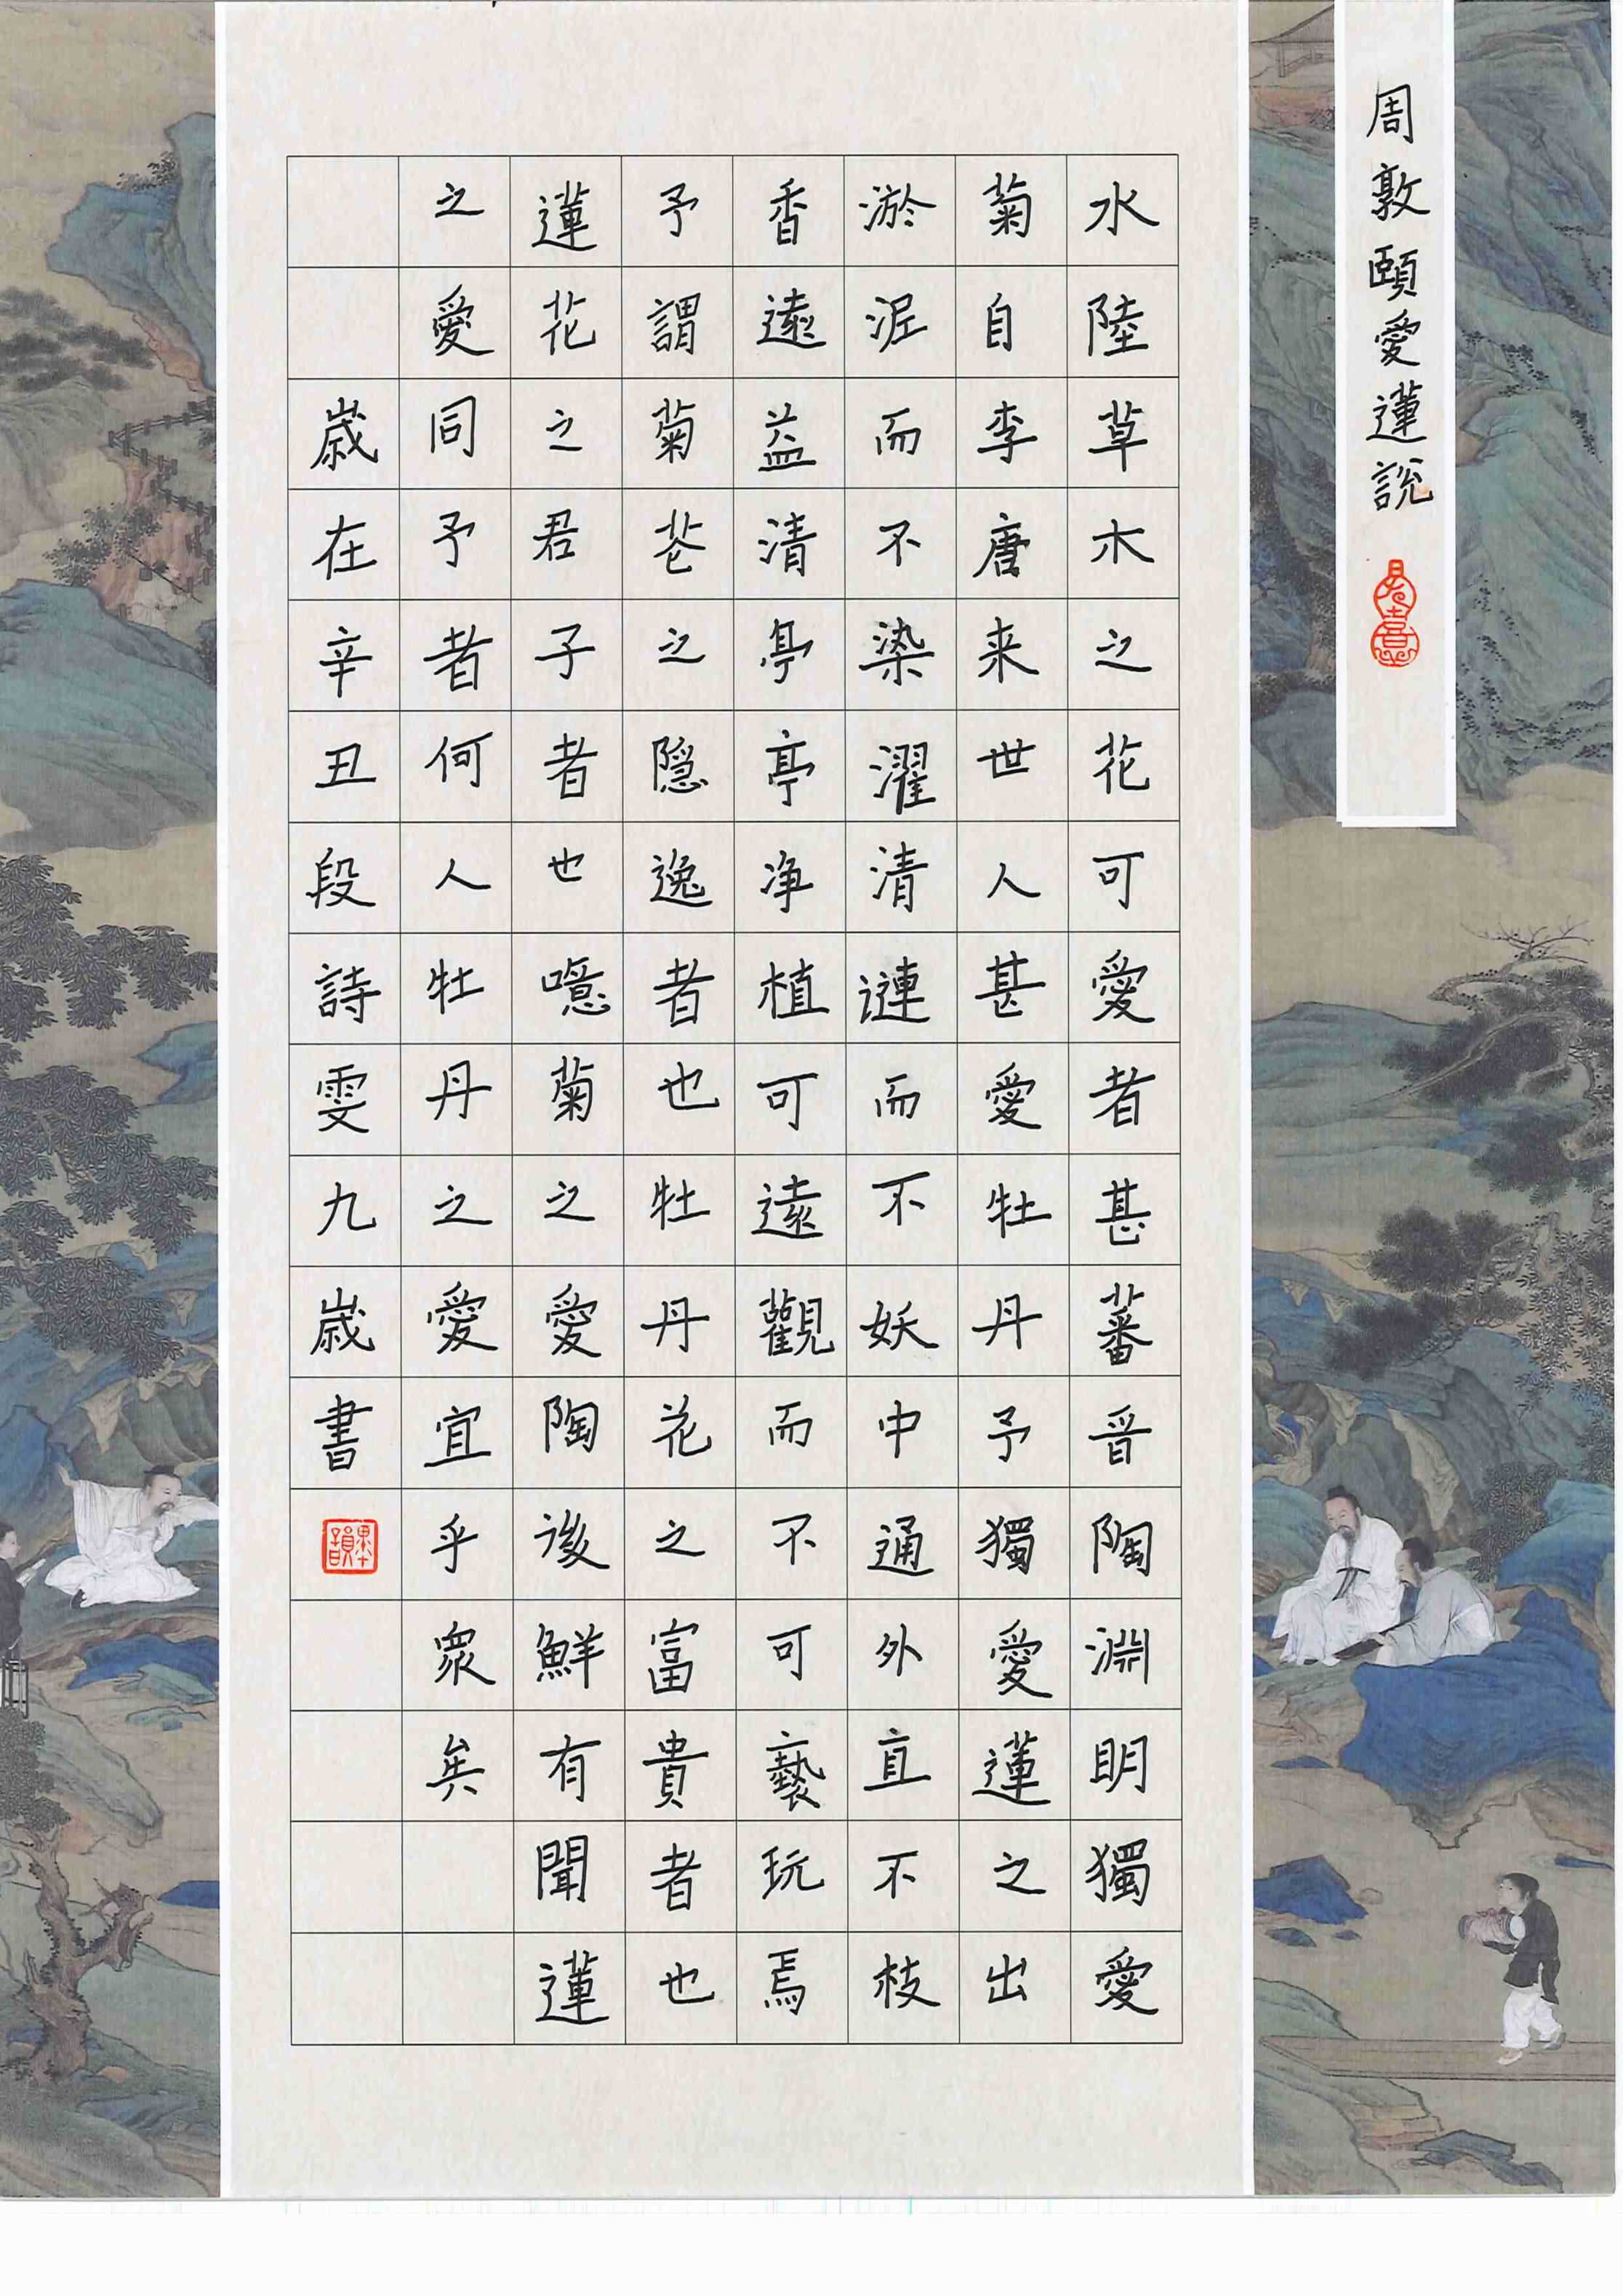 周敦頤愛蓮說
水陸草木之花可愛者甚蕃晋陶淵明獨愛
菊自李唐来世人甚愛牡丹予獨愛蓮之出
淤泥而不染濯清漣而不妖中通外直不枝
香遠益清亭亭净植可遠觀而不可褻玩焉
予謂菊花之隐逸者也牡丹花之富貴者也
蓮花之君子者也噫菊之愛陶後鮮有聞蓮
之愛同予者何人牡丹之愛宜乎衆矣
歳在辛丑段詩雯九歳書
墨韻